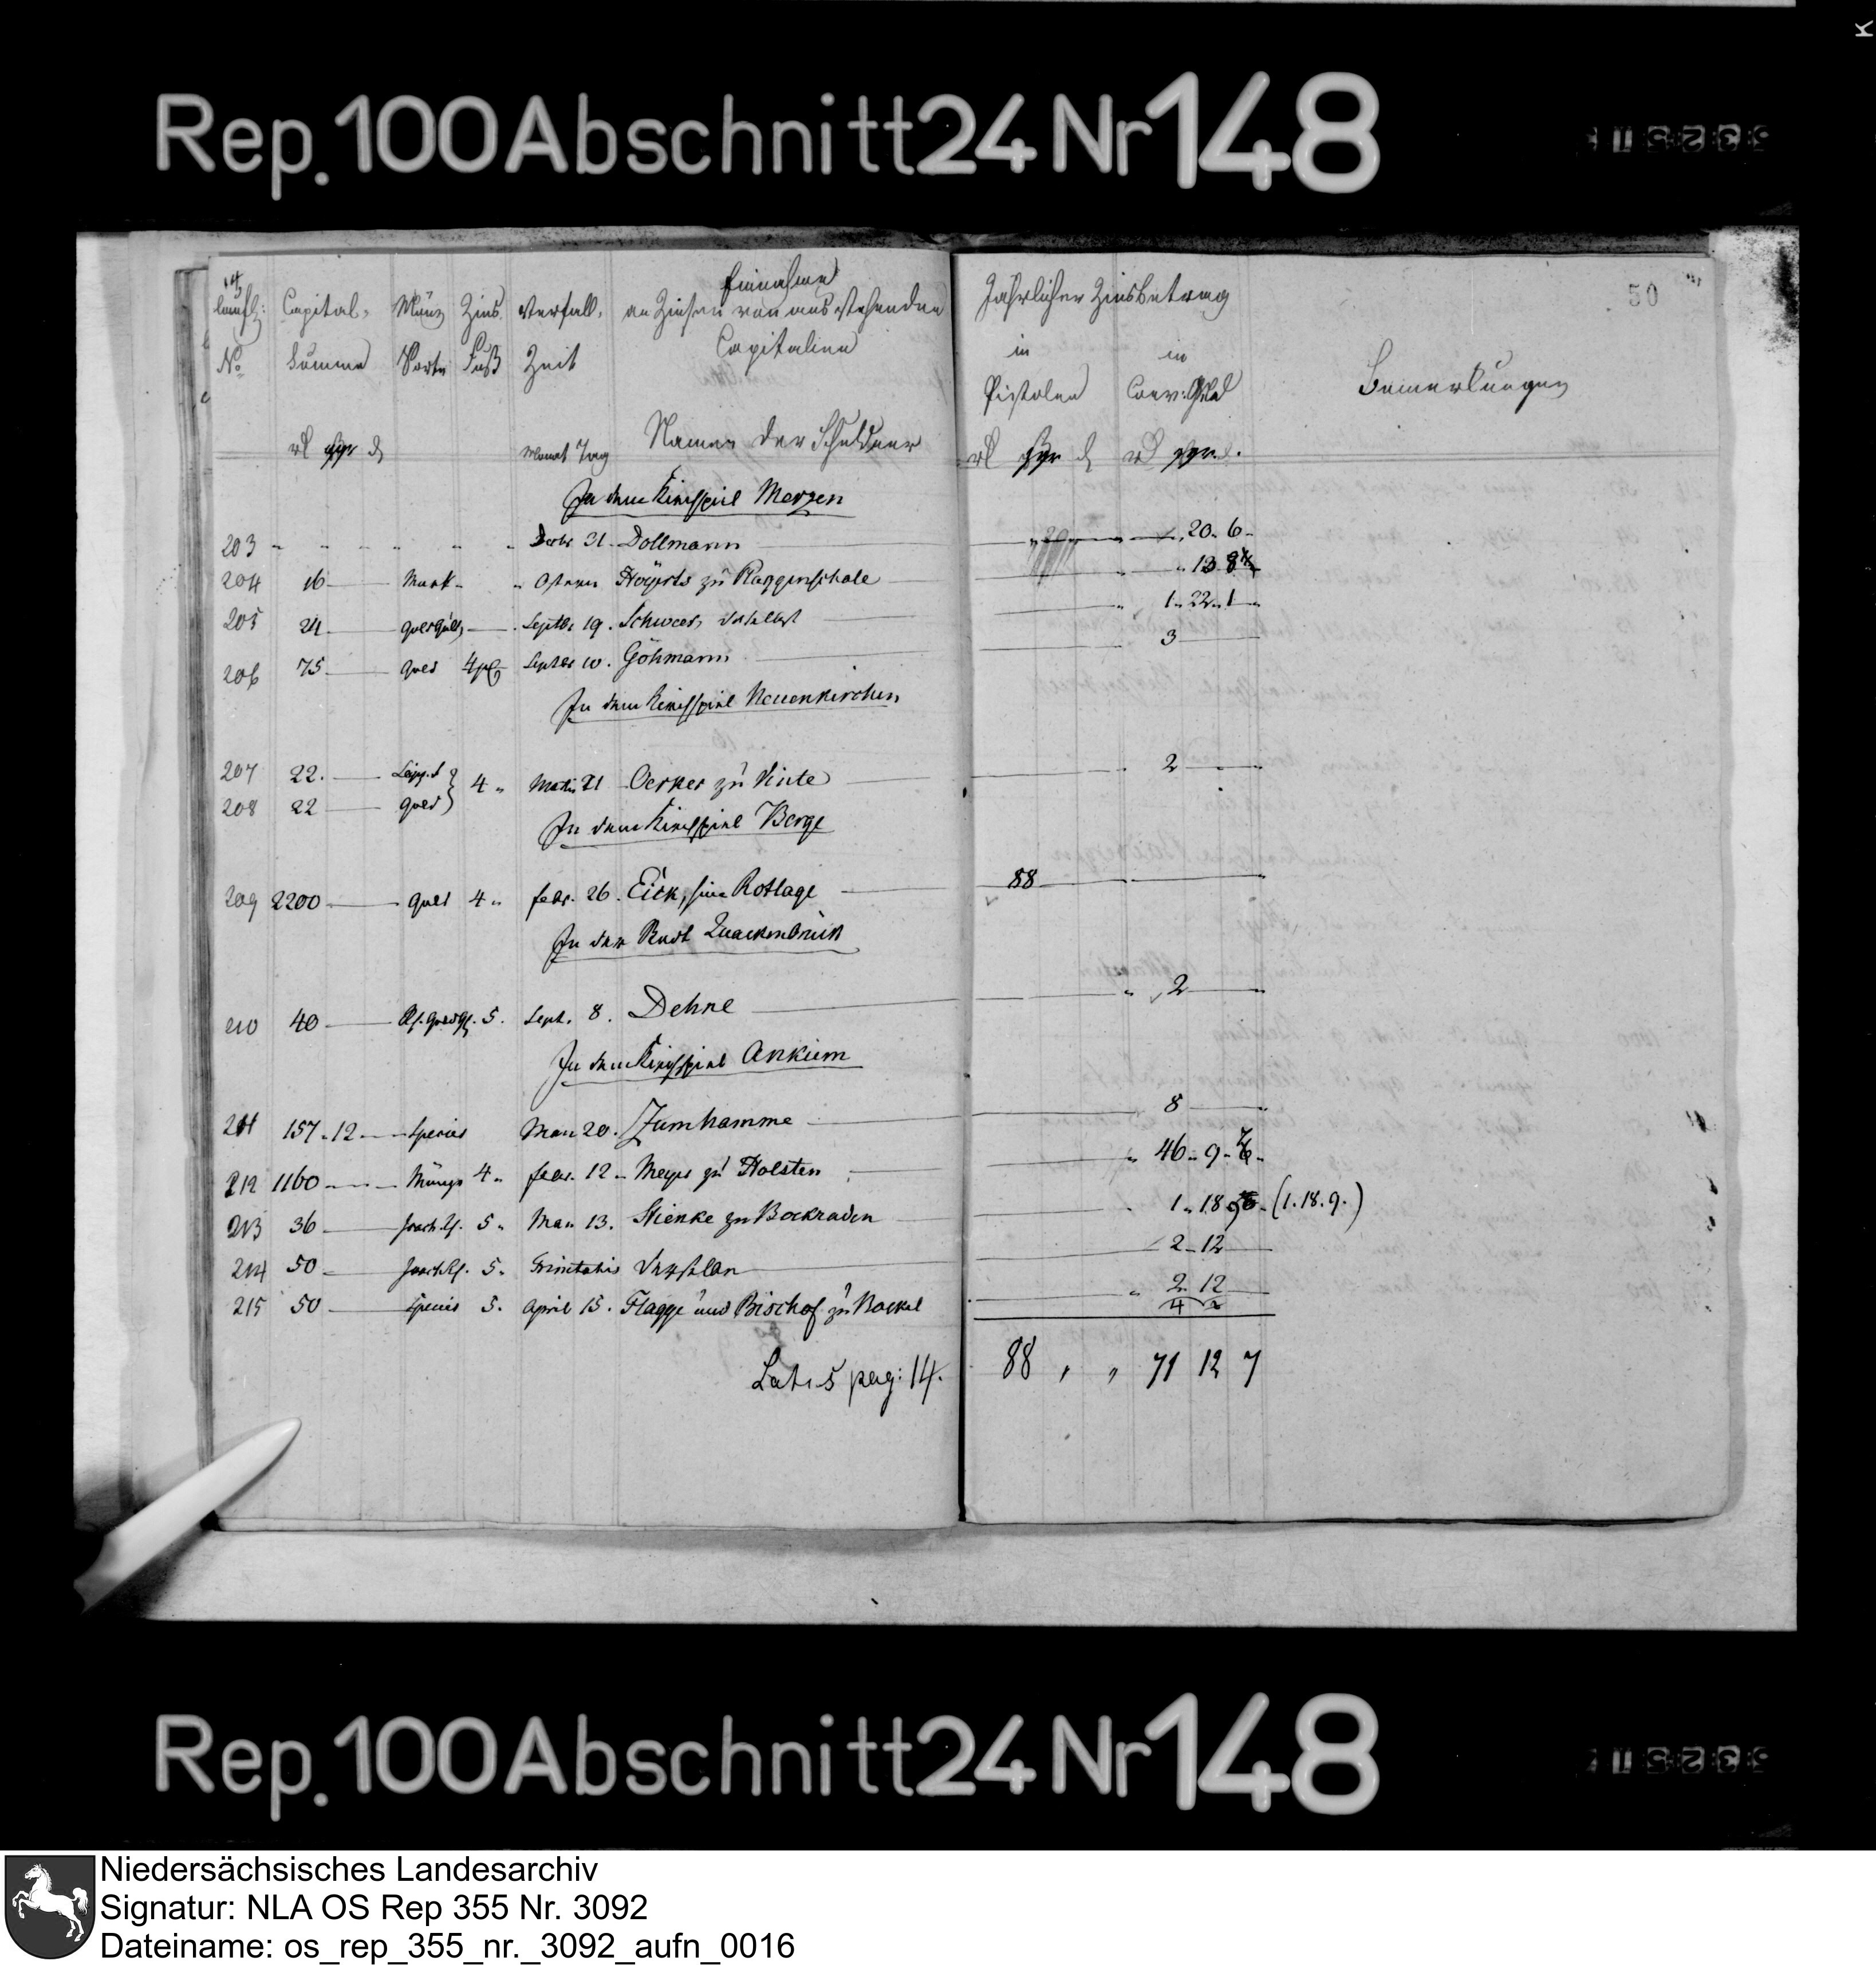 K
Rep. 100 Abschnitt 24 Nr 148
14
50
Einnahme
laufd: Capital- Münz Zins Verfall- an Zinsen von ausstehenden Jährlicher Zinsbetrag
No. Summe Sorte Fuß Zeit Capitalien in in Bemerkungen
Pistolen Conv: Geld
Monat Tag Namen der Schuldner
In dem Kirchspiel Merzen
203 31. Dollmann 20. 6
204 16 Mark Ostern Högerts zu Plaggenschale 13 8
205 24 Septbr 19. Schweer daselbst 1. 22. 1
206 75 Gold 4 Septbr 10. Göhmann 3
In dem Kirchspiel Neuenkirchen
207 22. 4 21 Oerker zu Vinte 2
208 22 Gold
In dem Kirchspiel Berge
209 2200 Gold 4 febr. 26. Eick, sive Rotlage 88
In der Stadt Quackenbrück
210 40 5. Sept. 8. Dehne 2
In dem Kirchspiel Ankum
211 157. 12 Species 20. Zumhamme 8
212 1160 Münze 4 febr. 12. Meyer zu Holsten 46. 9.
213 36 5 13. Nienke zu Bockraden 1. 18 (1. 18. 9.)
214 50 5. Trinitatis Derselbe 2 12
215 50 Species 5. April 15. Flagge und Bischof zu Bockel 2. 12
Latus pag: 14. 88 " " 71 12 7
Rep. 100 Abschnitt 24 Nr 148
Niedersächsisches Landesarchiv
Signatur: NLA OS Rep 355 Nr. 3092
Dateiname: os_rep_355_nr._3092_aufn_0016